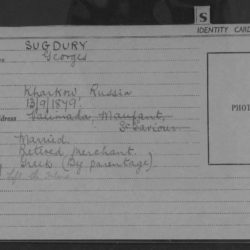 S
IDENTITY CARD
SUGDURY
Georges
Kharkow Russia
13/9/1879.
Address Salimada, Maufant,
St Saviour
Married.
Retired Merchant.
Greek (By parentage).
Left the Island
PHOT